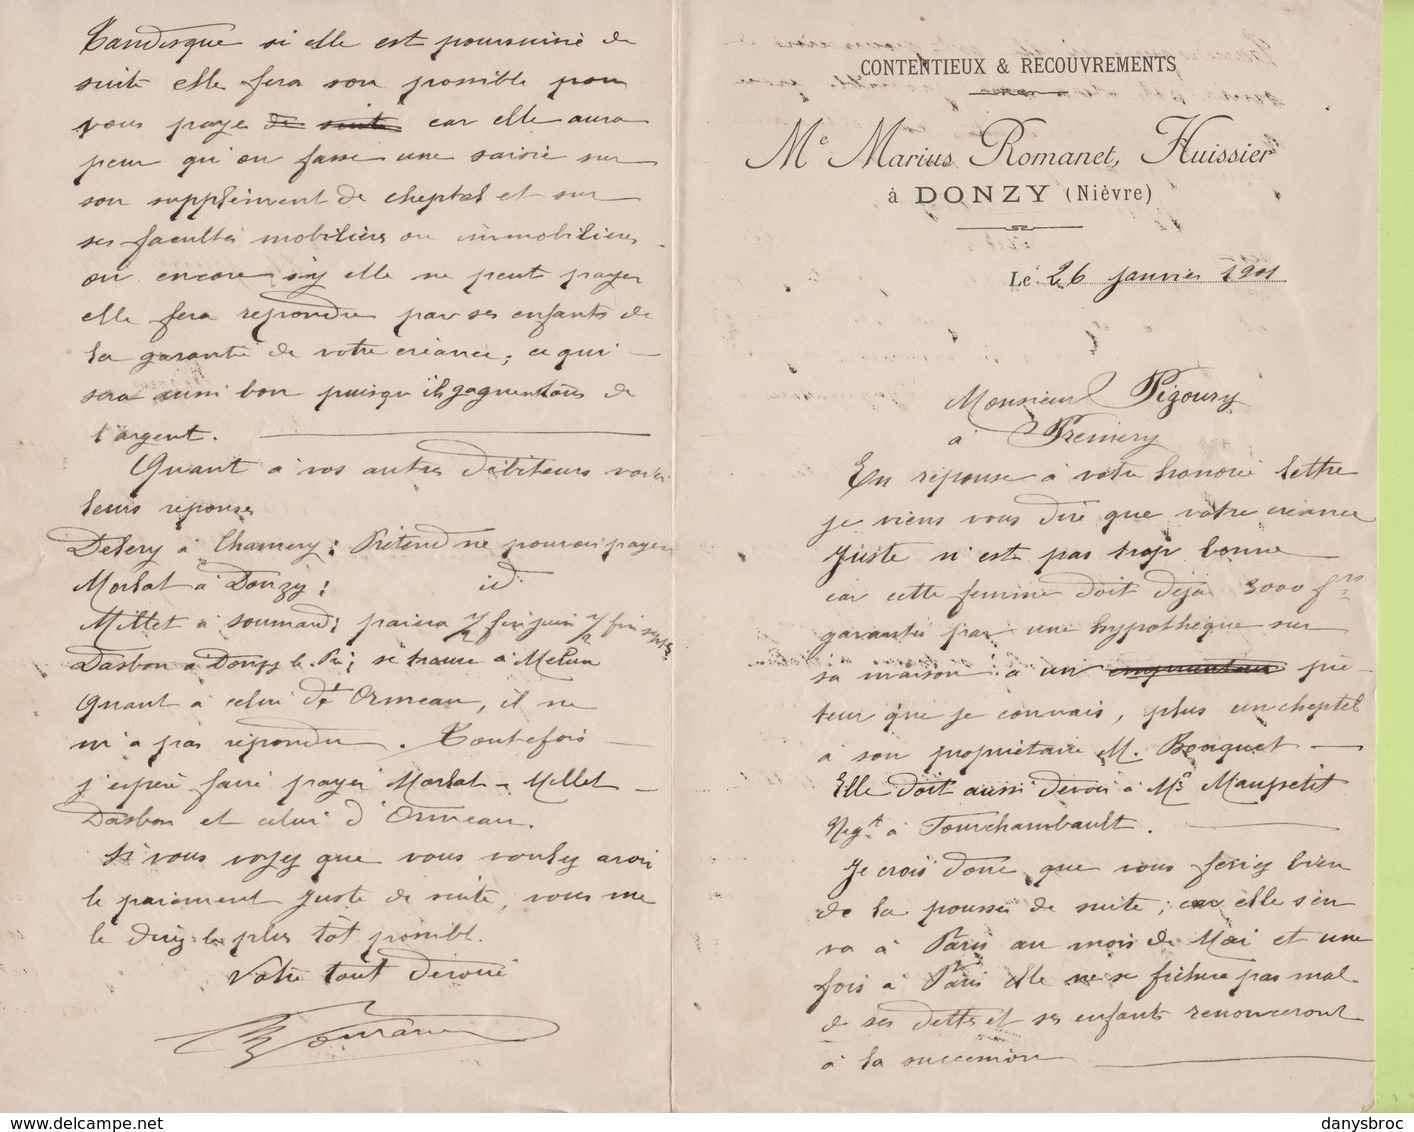 CONTENTIEUX & RECOUVREMENTS
Me Marius Romanet, Huissier
à DONZY (Nièvre)
Le 26 janvier 1901
Monsieur Pigoury
à Premery
En réponse à votre honoré lettre
je viens vous dire que votre créance
Juste n'est pas trop bonne
car cette femme doit déja 3000 frs
garantis par une hypothèque sur
sa maison à un emprunteur prê-
teur que je connais, plus un cheptel
à son propriétaire M. Bouquet
Elle doit aussi devoir à Mr Maupetit
Negt à Fourchambault.
Je crois donc que vous feriez bien
de la pousser de suite; car elle s'en
va à Paris au mois de Mai et une
fois à Paris elle ne se fichera pas mal
de ses dettes et ses enfants renonceront
à la succession
Tandisque si elle est poursuivie de
suite elle fera son possible pour
vous payer de suite car elle aura
peur qu'on fasse une saisie sur
son supplément de cheptel et sur
ses facultés mobilières ou immobilières
ou encore si elle ne peut payer
elle fera repondre par ses enfants de
la garantie de votre créance; ce qui
sera aussi bon puisqu'ils gagnent tous de
l'argent.
Quant à vos autres débiteurs voici
leurs reponses
Delery à Chamery: Prétend ne pouvoir payer
Morlat à Donzy: id
Millet à soumard; paiera 1/2 fin juin 1/2 fin sept
Dasbon à Donzy le Pré; se trouve à Melun
Quant à celui d'Ormeau, il ne
m'a pas répondu. Toutefois
j'espère faire payer Morlat - Millet -
Dasbon et celui d'Ormeau.
Si vous voyez que vous vouliez avoir
le paiement Juste de suite, vous me
le direz le plus tôt possible.
Votre tout dévoué
danysbroc